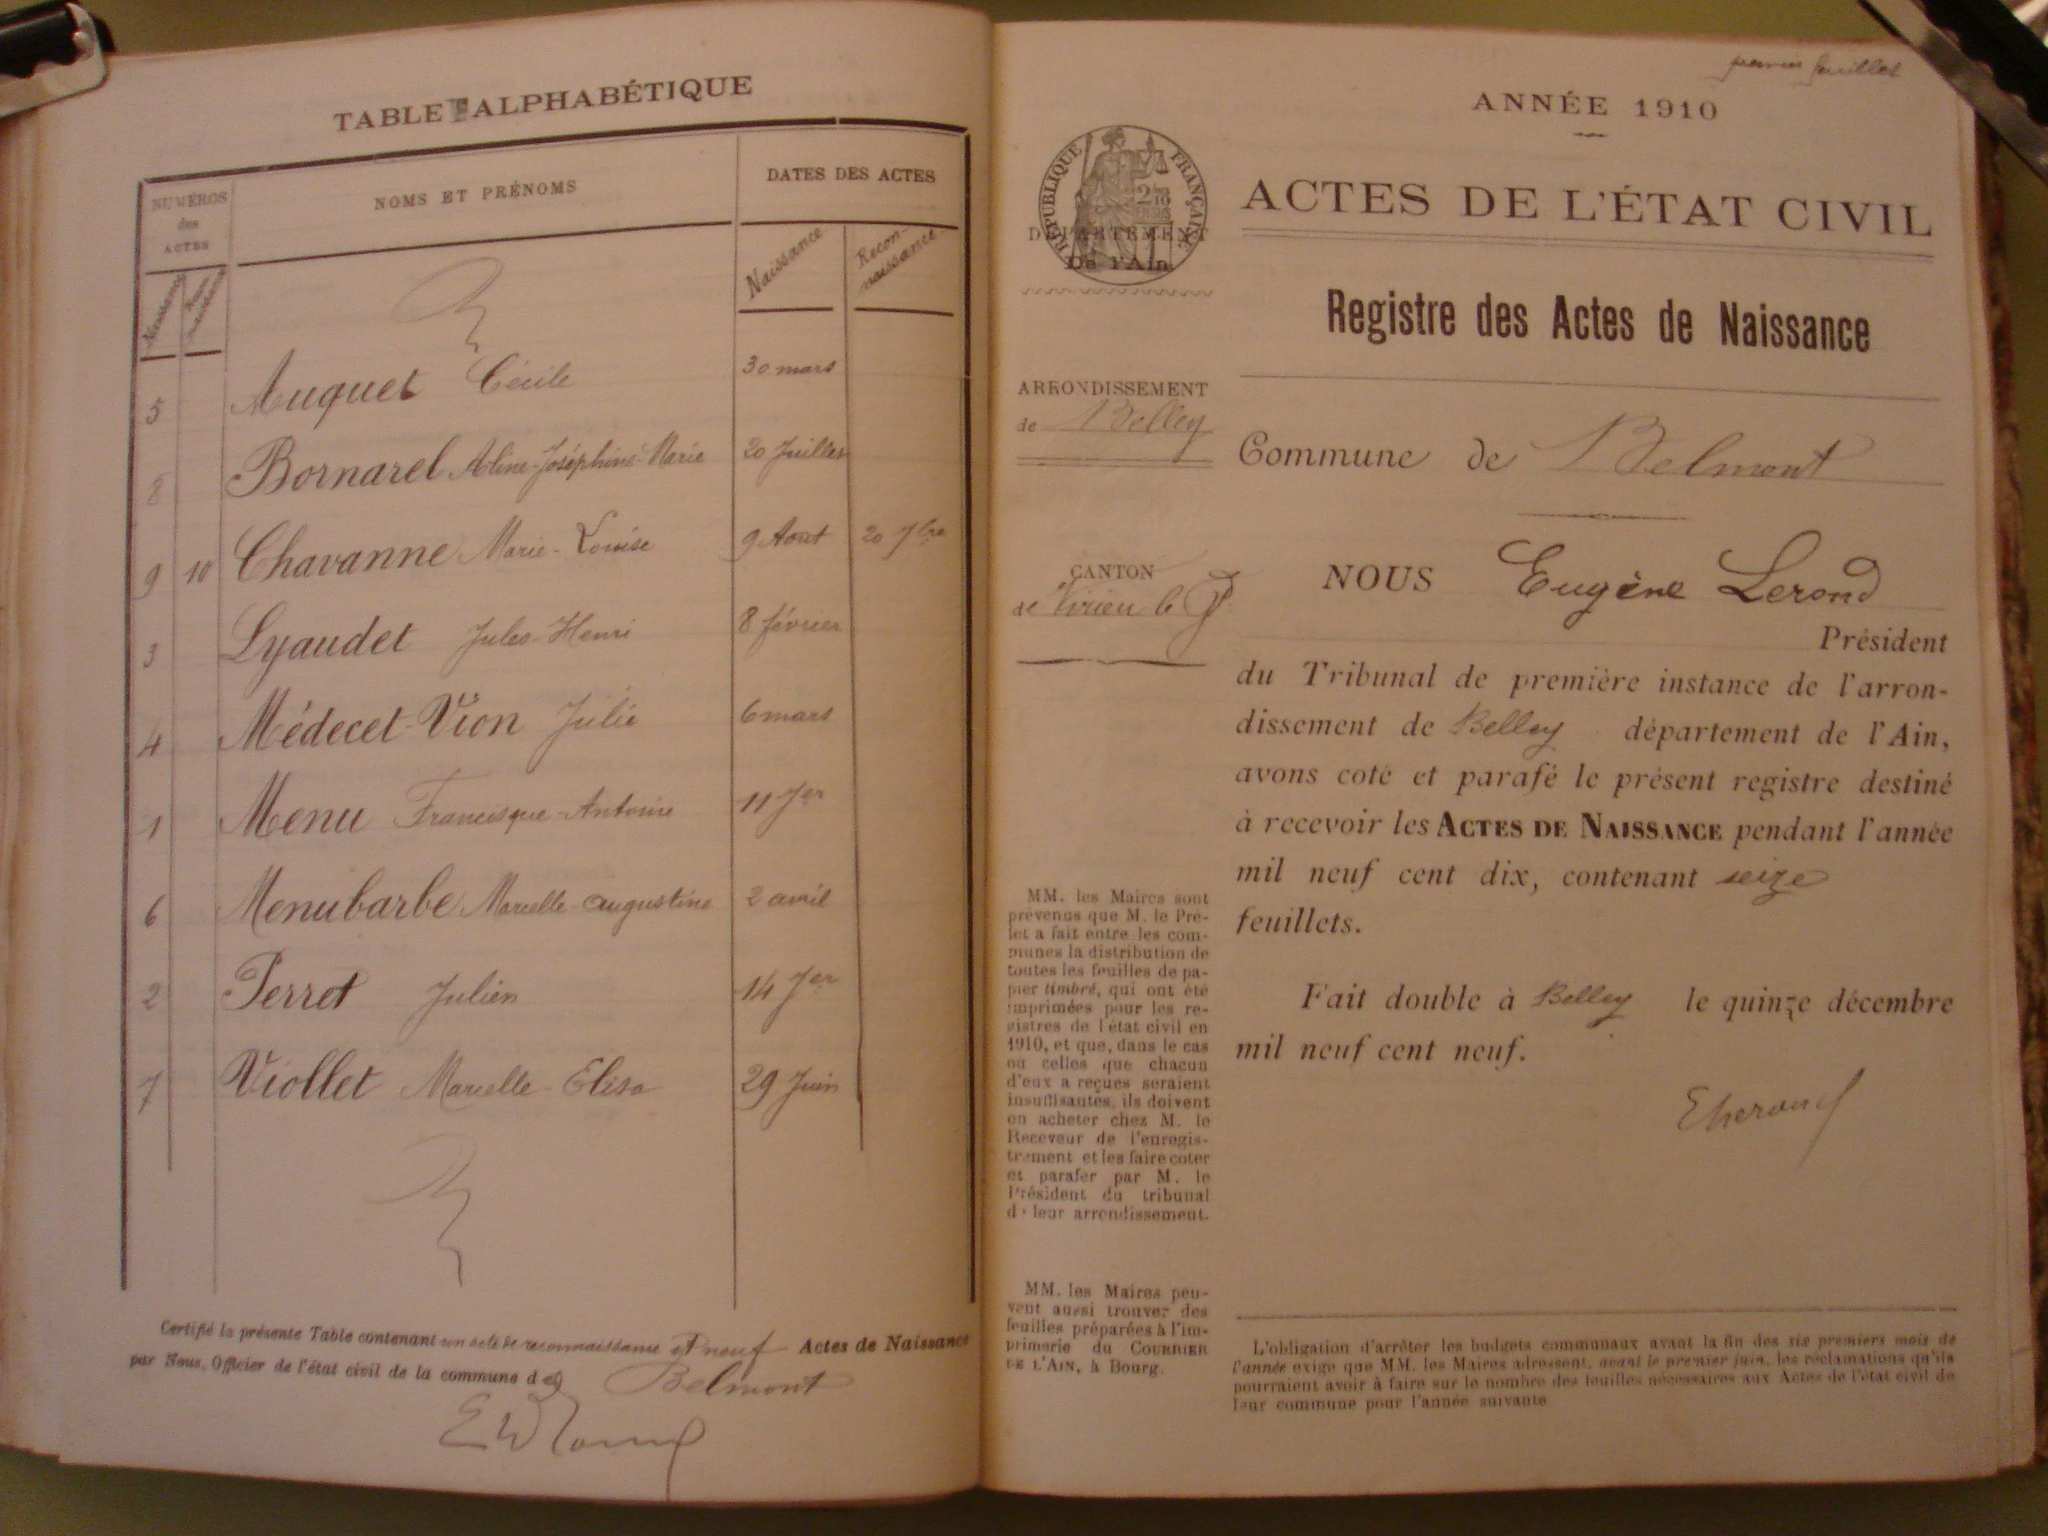 TABLE ALPHABÉTIQUE
NUMÉROS
des
ACTES
NOMS ET PRÉNOMS
DATES DES ACTES
Naissance
Recon-
naissance
5 Auquet Cécile 30 mars
8 Bornarel Aline-Joséphine-Marie 20 Juillet
9 10 Chavanne Marie-Louise 9 Aout 20 7bre
3 Lyaudet Jules-Henri 8 février
4 Médecet-Vion Julie 6 mars
1 Menu Francisque-Antoine 11 Jer
6 Menubarbe Marcelle-augustine 2 avril
2 Perrot Julien 14 Jer
7 Viollet Marcelle-Elisa 29 Juin
Certifié la présente Table contenant un acte de reconnaissance et neuf Actes de Naissance
par Nous, Officier de l'état civil de la commune de
Belmont
premier feuillet
ANNÉE 1910
RÉPUBLIQUE FRANÇAISE
DÉPARTEMENT
De l'Ain
ACTES DE L'ÉTAT CIVIL
Registre des Actes de Naissance
ARRONDISSEMENT
de Belley
Commune de Belmont
CANTON
de Virieu le Gd
NOUS Eugène Lerond
Président
du Tribunal de première instance de l'arron-
dissement de Belley département de l'Ain,
avons coté et parafé le présent registre destiné
à recevoir les ACTES DE NAISSANCE pendant l'année
mil neuf cent dix, contenant seize
feuillets.
Fait double à Belley le quinze décembre
mil neuf cent neuf.
MM. les Maires sont
prévenus que M. le Pré-
fet a fait entre les com-
munes la distribution de
toutes les feuilles de pa-
pier timbré, qui ont été
imprimées pour les re-
gistres de l'état civil en
1910, et que, dans le cas
où celles que chacun
d'eux a reçues seraient
insuffisantes, ils doivent
en acheter chez M. le
Receveur de l'enregis-
trement et les faire coter
et parafer par M. le
Président du tribunal
de leur arrondissement.
MM. les Maires peu-
vent aussi trouver des
feuilles préparées à l'im-
primerie du COURRIER
DE L'AIN, à Bourg.
L'obligation d'arrêter les budgets communaux avant la fin des six premiers mois de
l'année exige que MM. les Maires adressent, avant le premier juin, les réclamations qu'ils
pourraient avoir à faire sur le nombre des feuilles nécessaires aux Actes de l'état civil de
leur commune pour l'année suivante